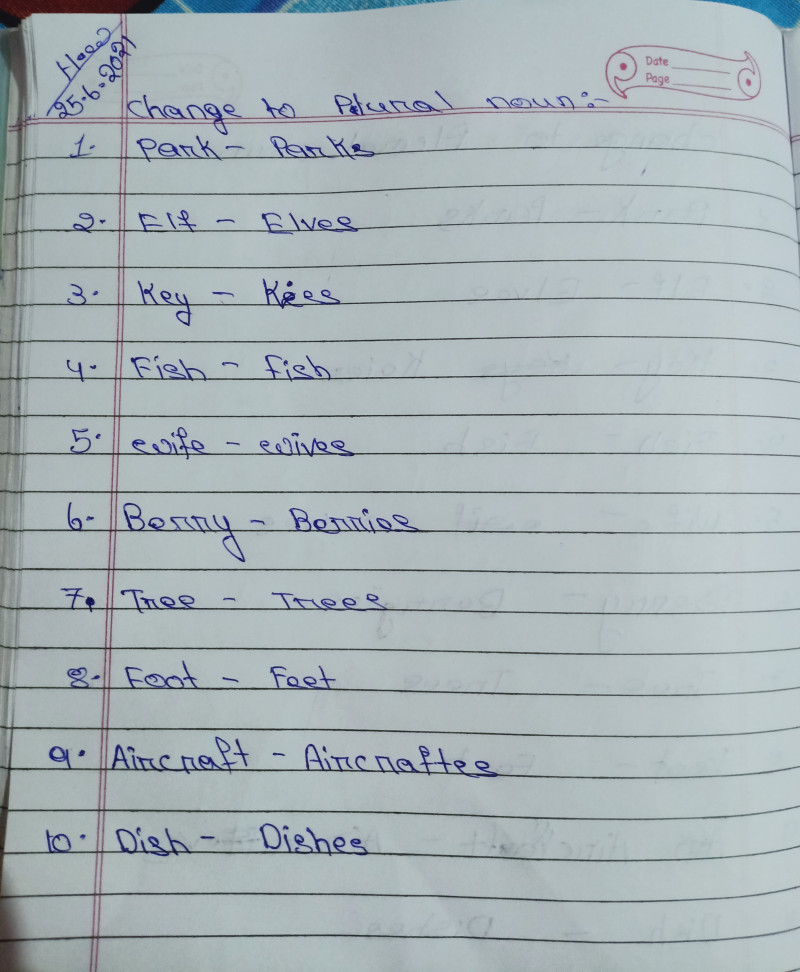 25.6.2021
Date
Page
Change to Plural noun:-
1. Park - Parks
2. Elf - Elves
3. Key - Kies
4. Fish - Fish
5. Wife - Wives
6. Berry - Berries
7. Tree - Trees
8. Foot - Feet
9. Aircraft - Aircraftes
10. Dish - Dishes